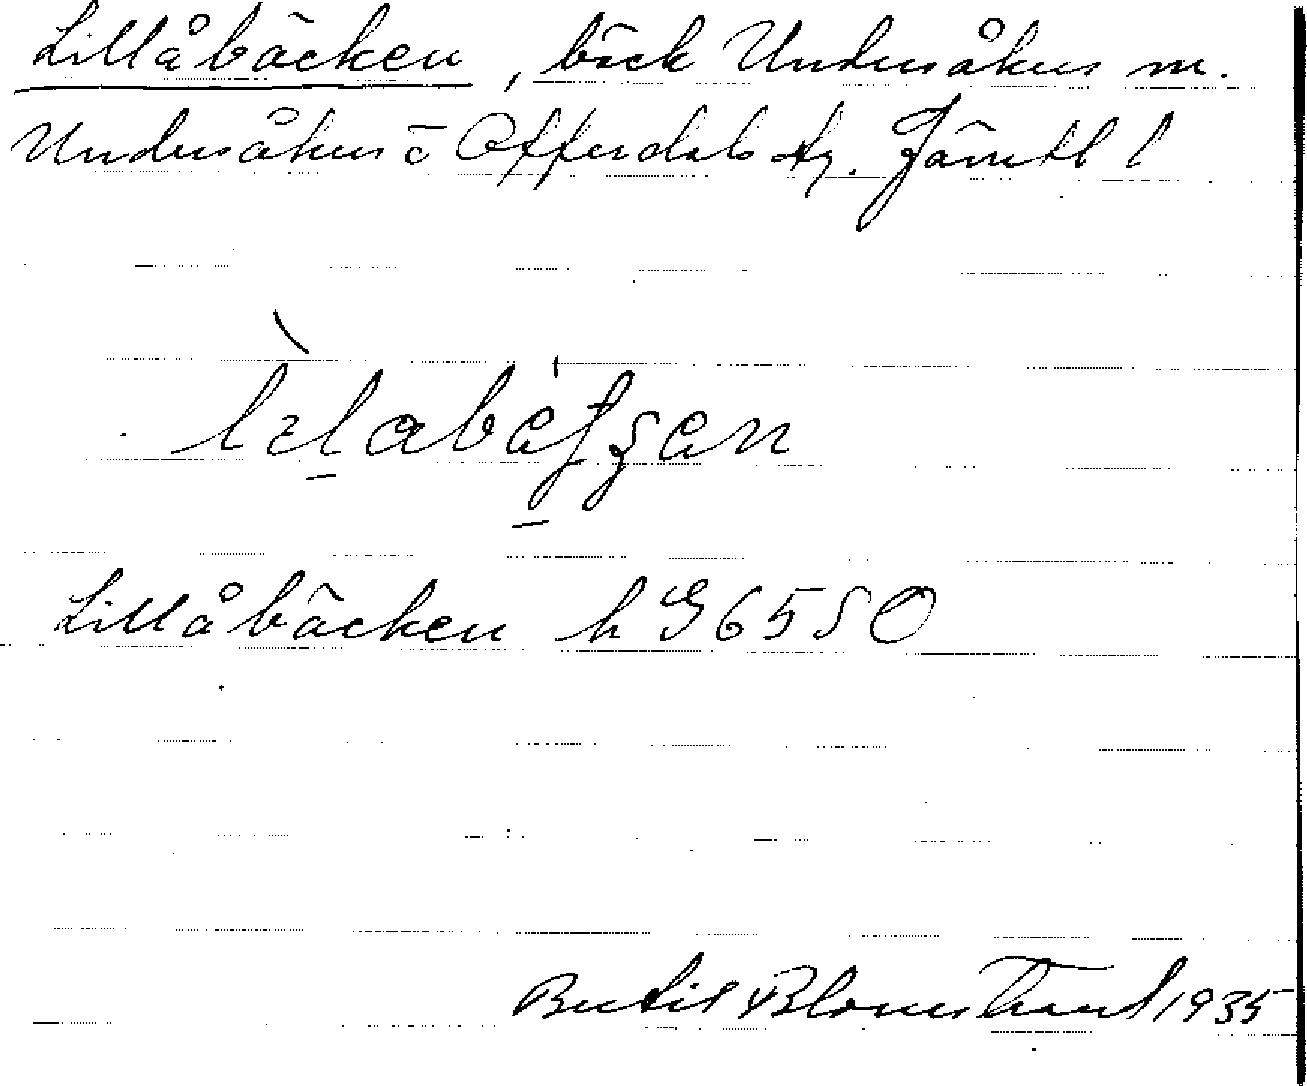 Lillåbäcken, bäck Undersåkers sn.
Undersåkers o Offerdals tg. Jämtl l
Lillåbäcken h G6550
Bertil Blomstrand 1935